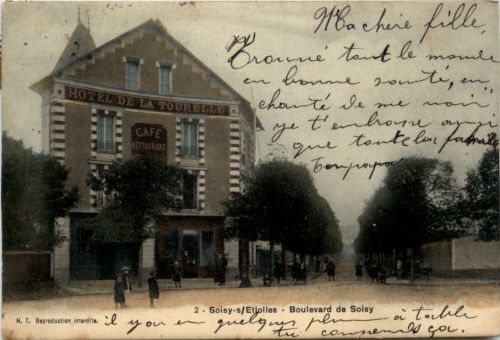 Ma chère fille,
Trouvé tout le monde
en bonne santé, en
chanté de me voir
je t'embrasse ainsi
que toute la famille
Ton papa
HOTEL DE LA TOURELLE
CAFÉ
RESTAURANT
2 - Soisy-s/Etiolles - Boulevard de Soisy
H. T. Reproduction interdite.
il y en quelques plum à table
tu connais ça.